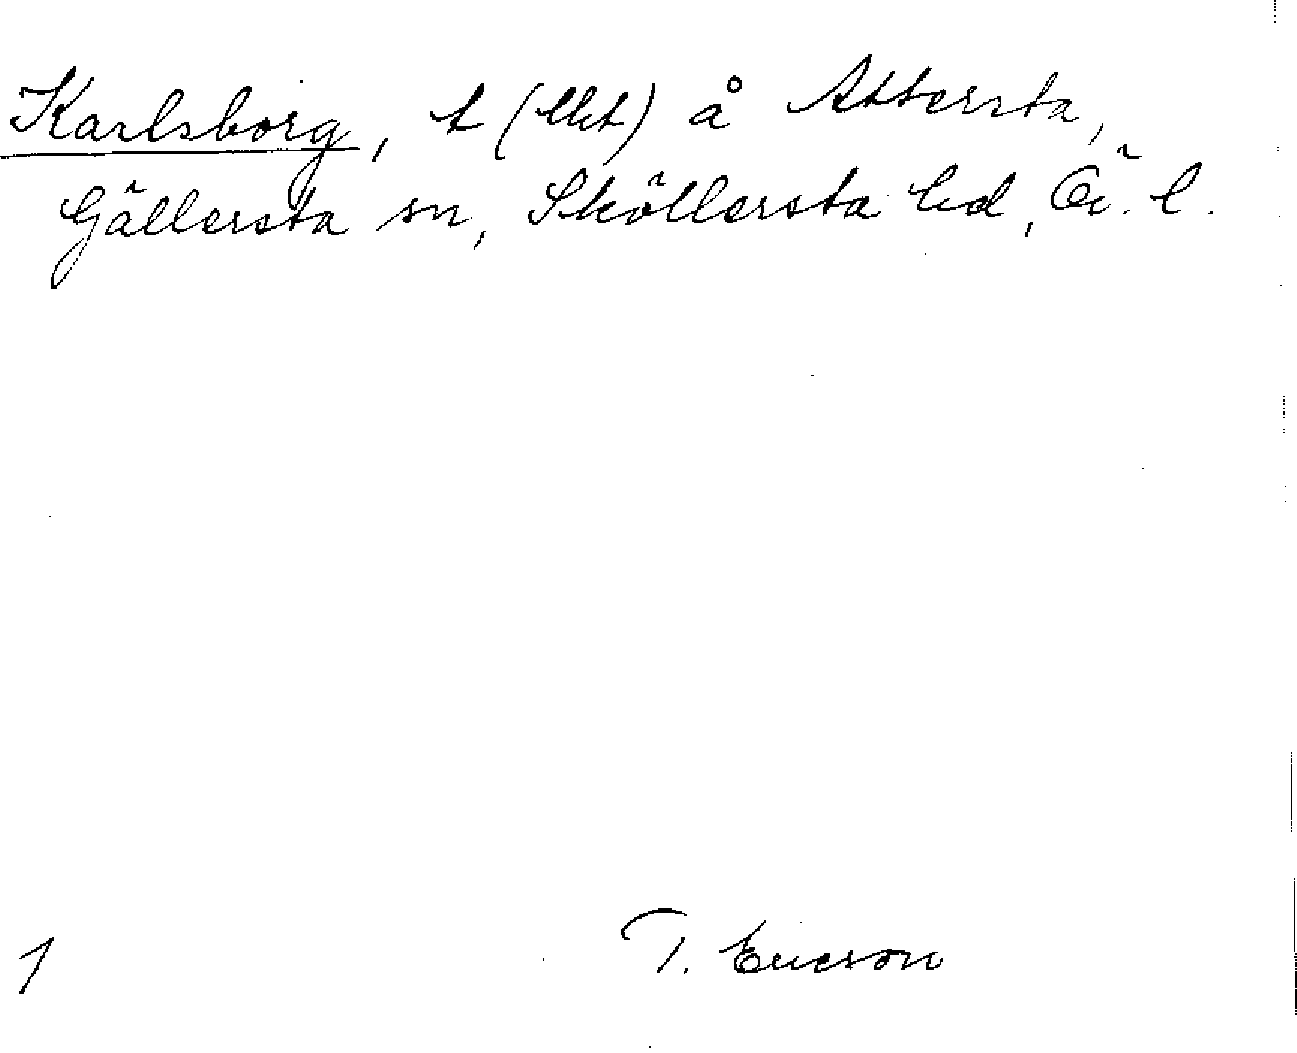 Karlsborg, t (lht) å Attersta,
Gällersta sn, Sköllersta hd, Ö. l.
1 T. Ericson